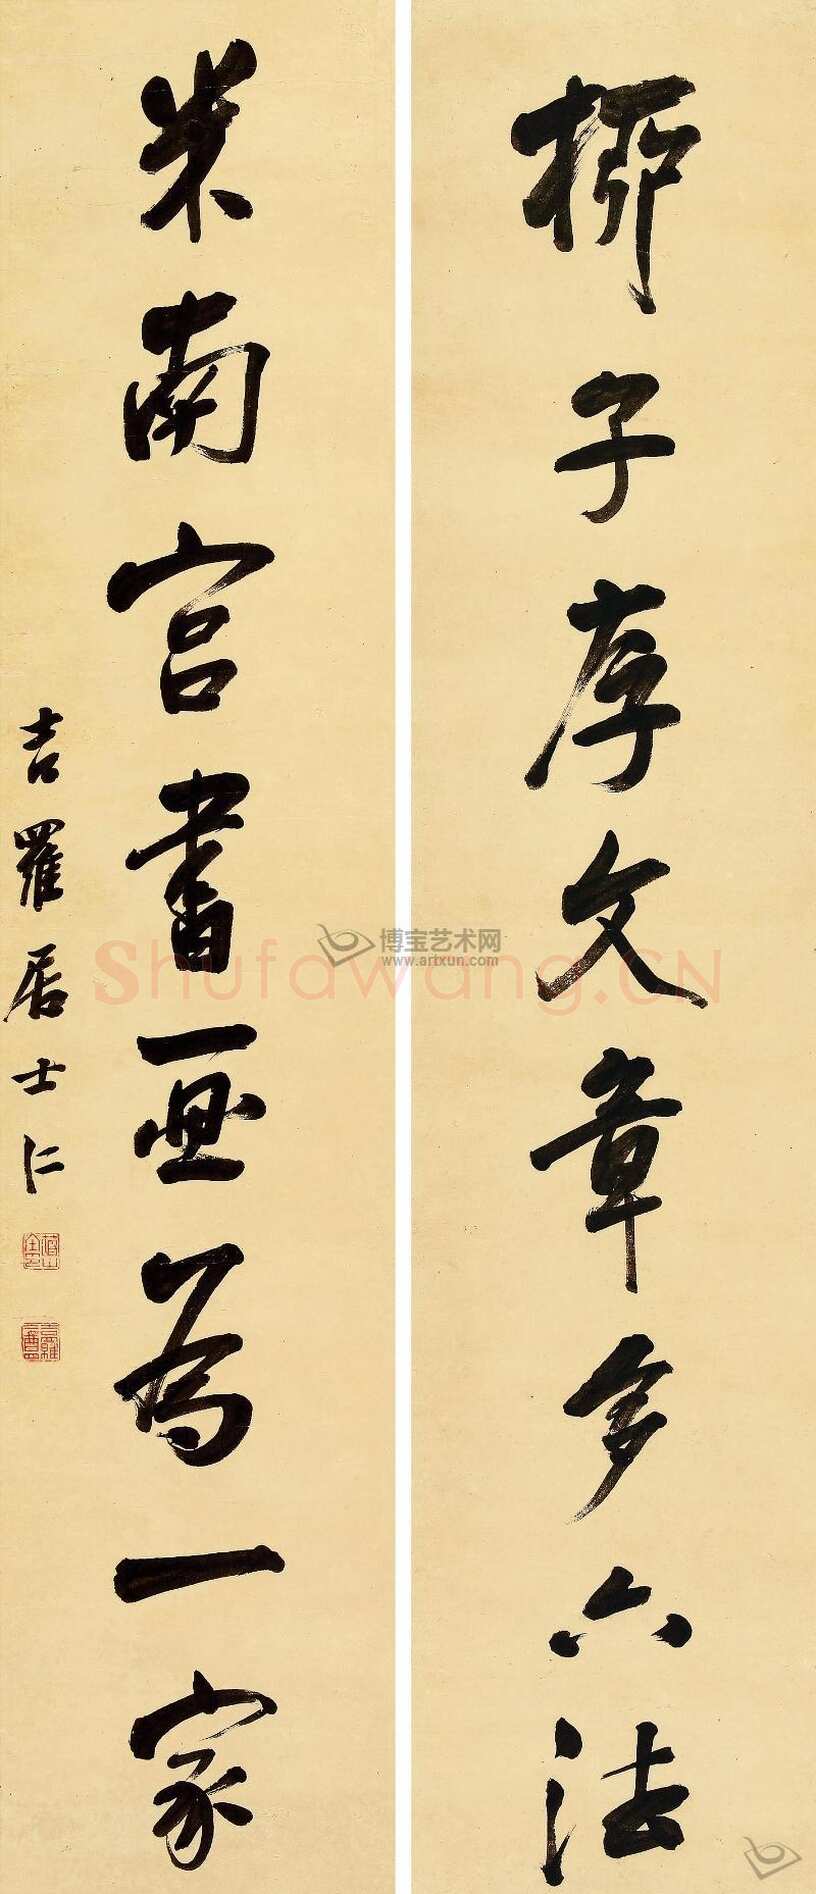 柳子厚文章多六法
米南宮書畫為一家
吉羅居士仁
博宝艺术网
www.artxun.com
Shufawang.CN